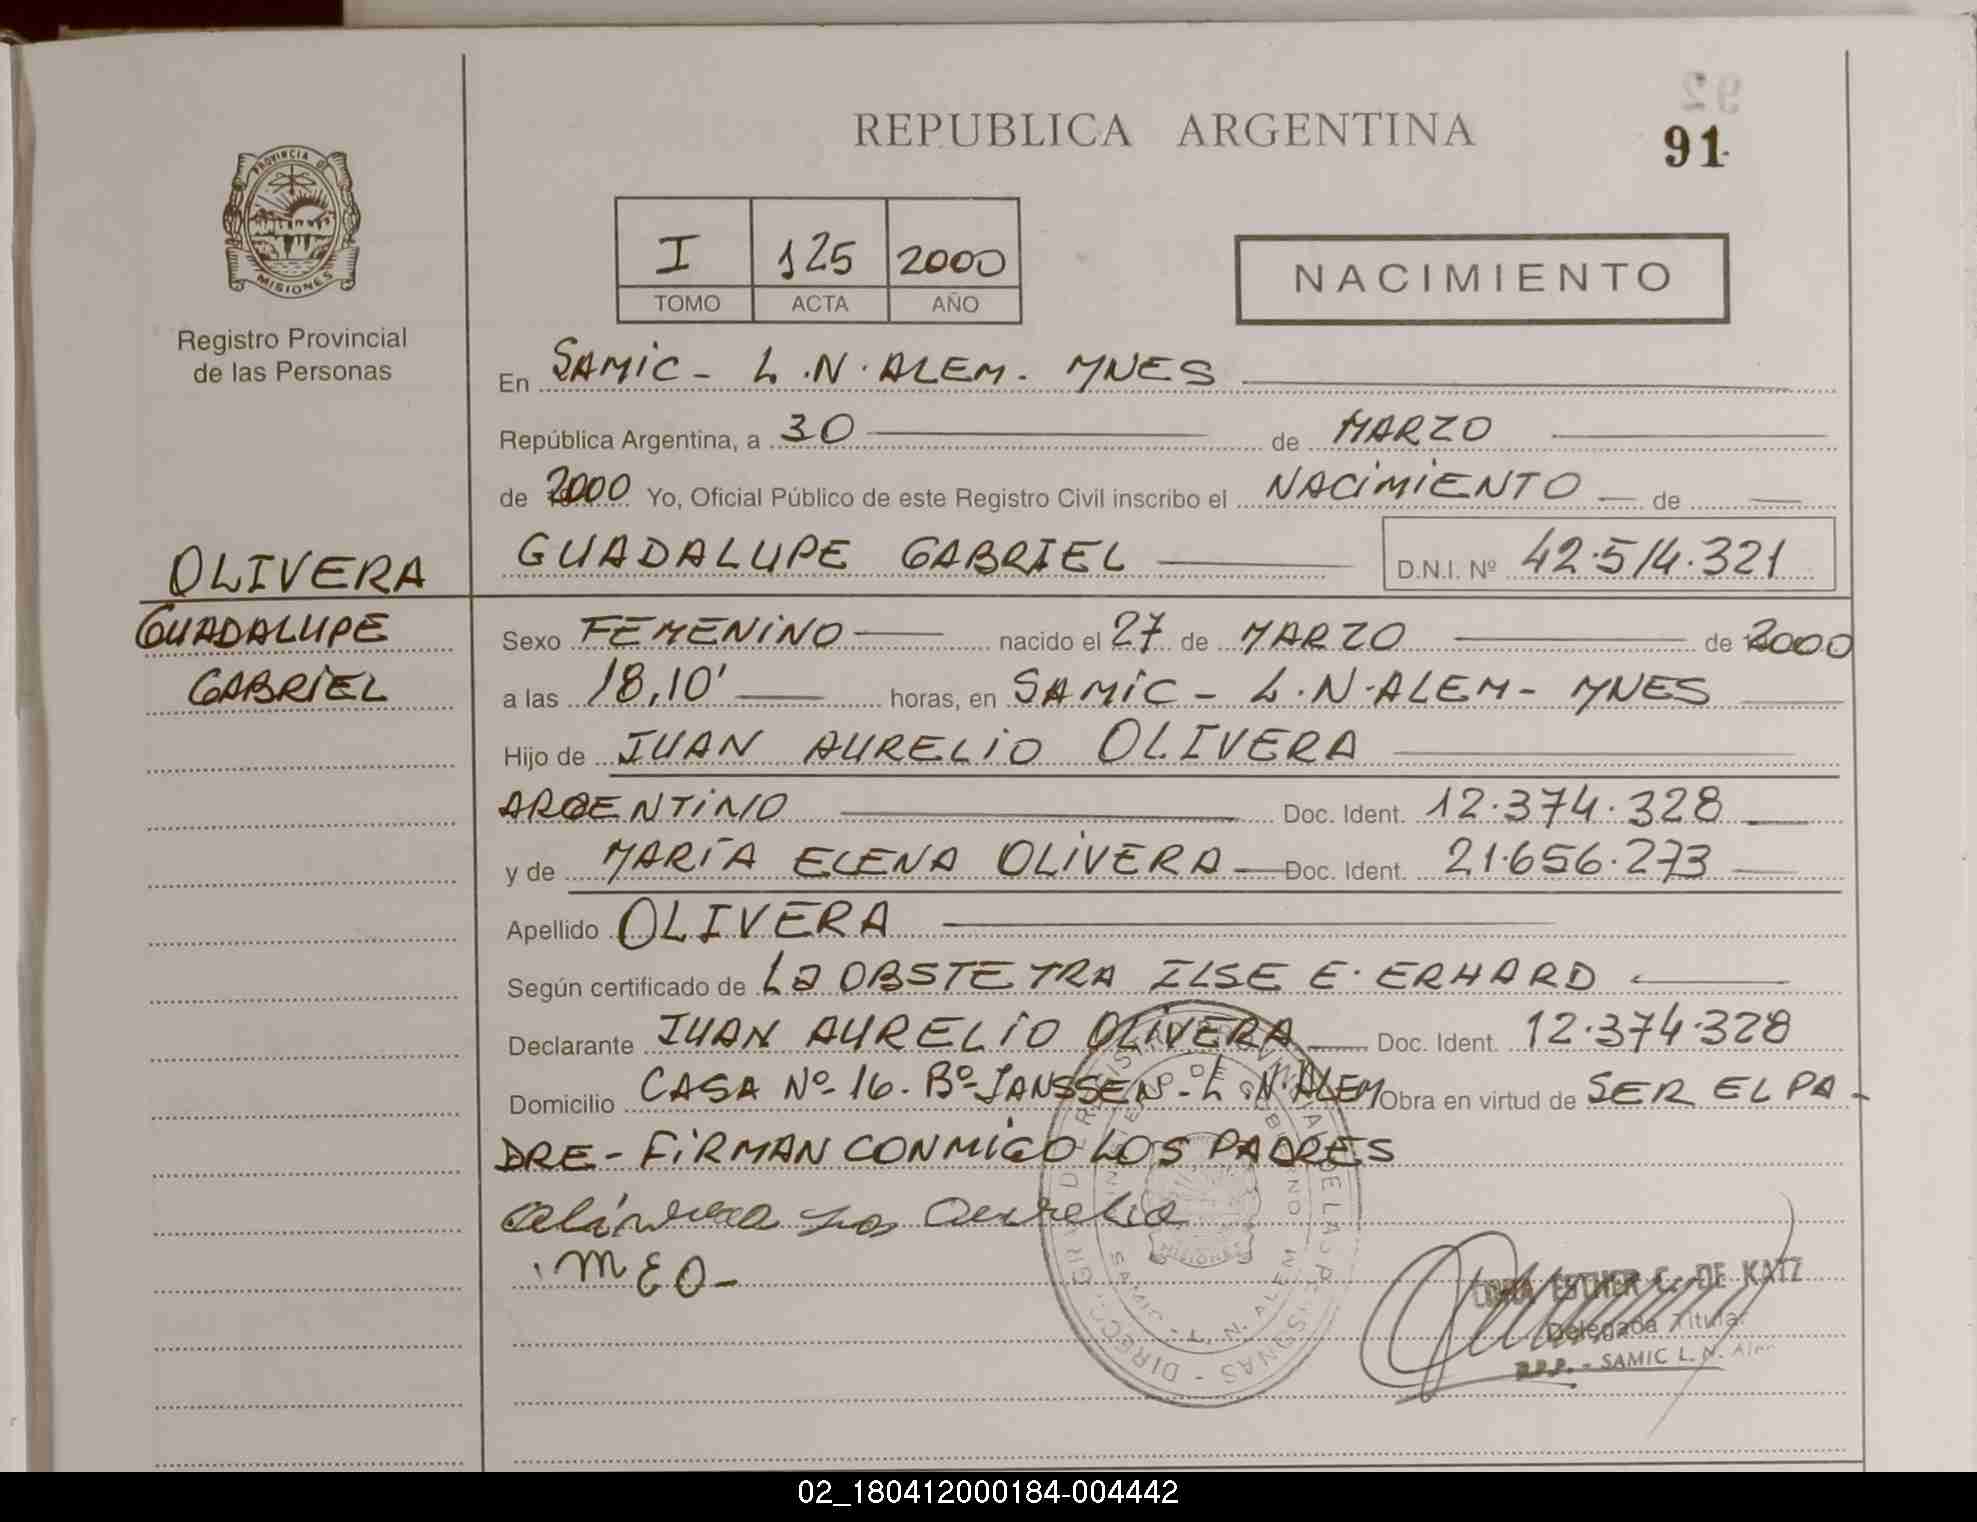 REPUBLICA ARGENTINA
91
PROVINCIA DE
MISIONES
Registro Provincial
de las Personas
I 125 2000
TOMO ACTA AÑO
NACIMIENTO
En SAMIC - L.N.ALEM. MNES
República Argentina, a 30 de MARZO
de 2000 Yo, Oficial Público de este Registro Civil inscribo el NACIMIENTO de
GUADALUPE GABRIEL D.N.I. Nº 42.514.321
OLIVERA
GUADALUPE
GABRIEL
Sexo FEMENINO nacido el 27 de MARZO de 2000
a las 18,10' horas, en SAMIC - L.N.ALEM - MNES
Hijo de JUAN AURELIO OLIVERA
ARGENTINO Doc. Ident. 12.374.328
y de MARÍA ELENA OLIVERA Doc. Ident. 21.656.273
Apellido OLIVERA
Según certificado de La OBSTETRA ILSE E. ERHARD
Declarante JUAN AURELIO OLIVERA Doc. Ident. 12.374.328
Domicilio CASA Nº 16. Bº JANSSEN - L.N.ALEM Obra en virtud de SER EL PA-
DRE - FIRMAN CONMIGO LOS PADRES
Aurelio
MEO-
ESTHER C. DE KATZ
Delegada Titular
R.P.P. - SAMIC L. N. Alem
02_180412000184-004442